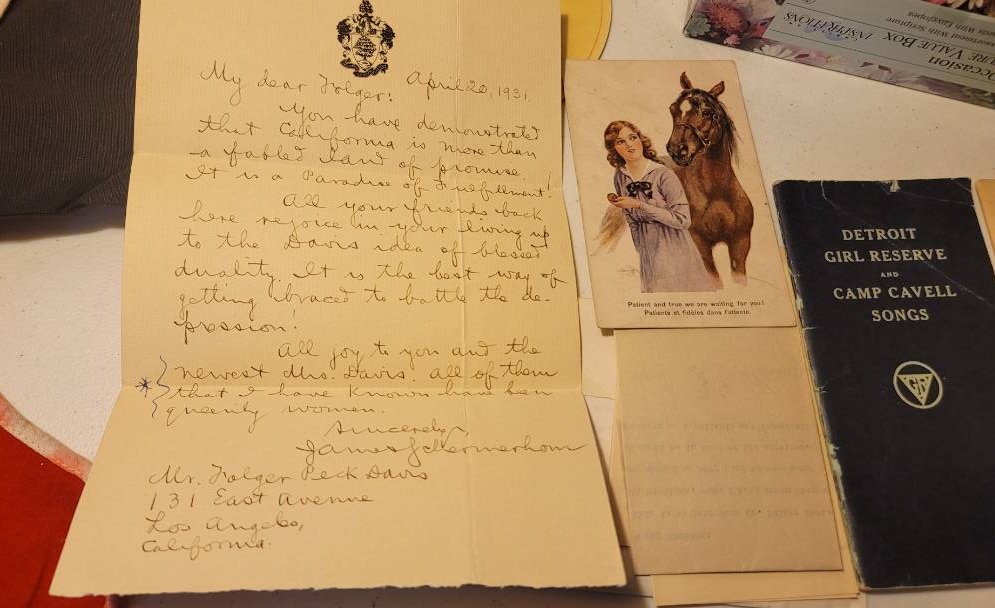 My dear Folger: April 20, 1931.
You have demonstrated
that California is more than
a fabled land of promise.
It is a Paradise of Fulfillment!
All your friends back
here rejoice in your living up
to the Davis idea of blessed
duality. It is the best way of
getting braced to battle the de-
pression!
All joy to you and the
newest Mrs. Davis. all of them
that I have known have been
queenly women.
Sincerely,
James Schermerhorn
Mr. Folger Peck Davis
131 East Avenue
Los Angeles,
California.
Patient and true we are waiting for you!
Patients et fidèles dans l'attente.
DETROIT
GIRL RESERVE
AND
CAMP CAVELL
SONGS
GR
INSPIRATIONS
VALUE BOX
With Scripture
with Envelopes